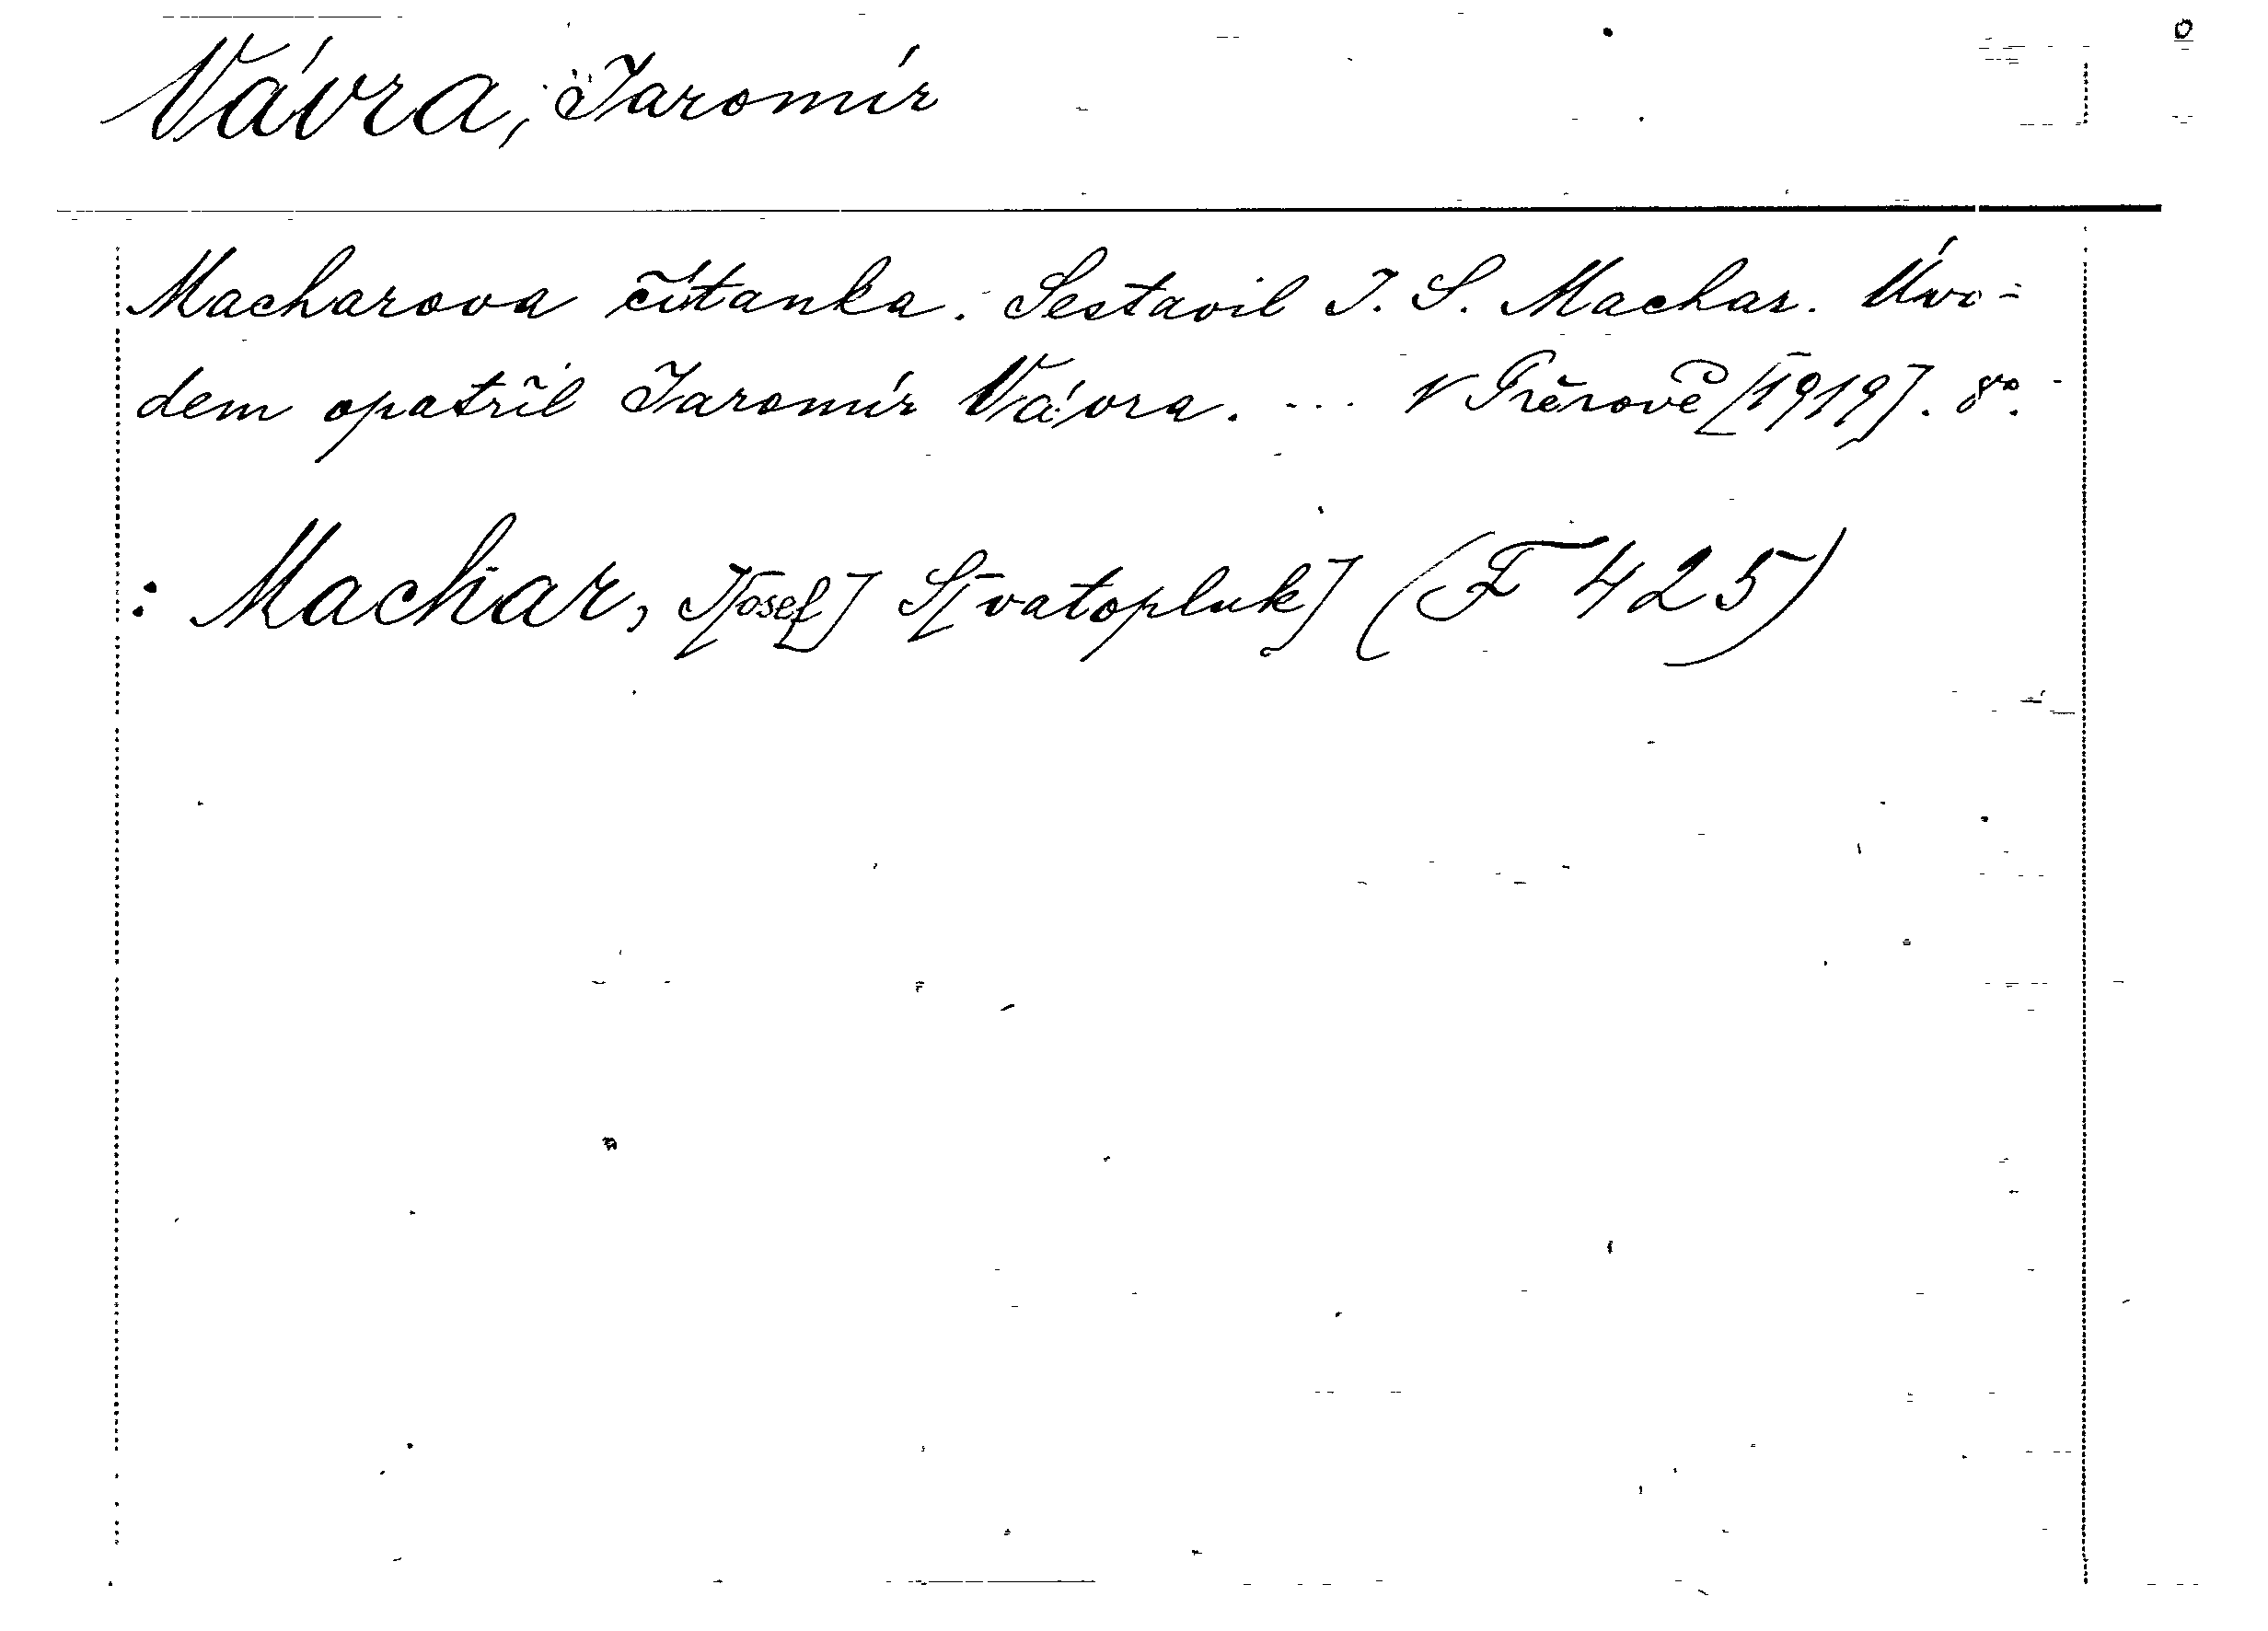 Vávra, Jaromír
Macharova čítanka. Sestavil J. S. Machar. Úvo-
dem opatřil Jaromír Vávra. ... V Přerově [1919]. 8°.
: Machar, J[osef] S[vatopluk] (F 425)